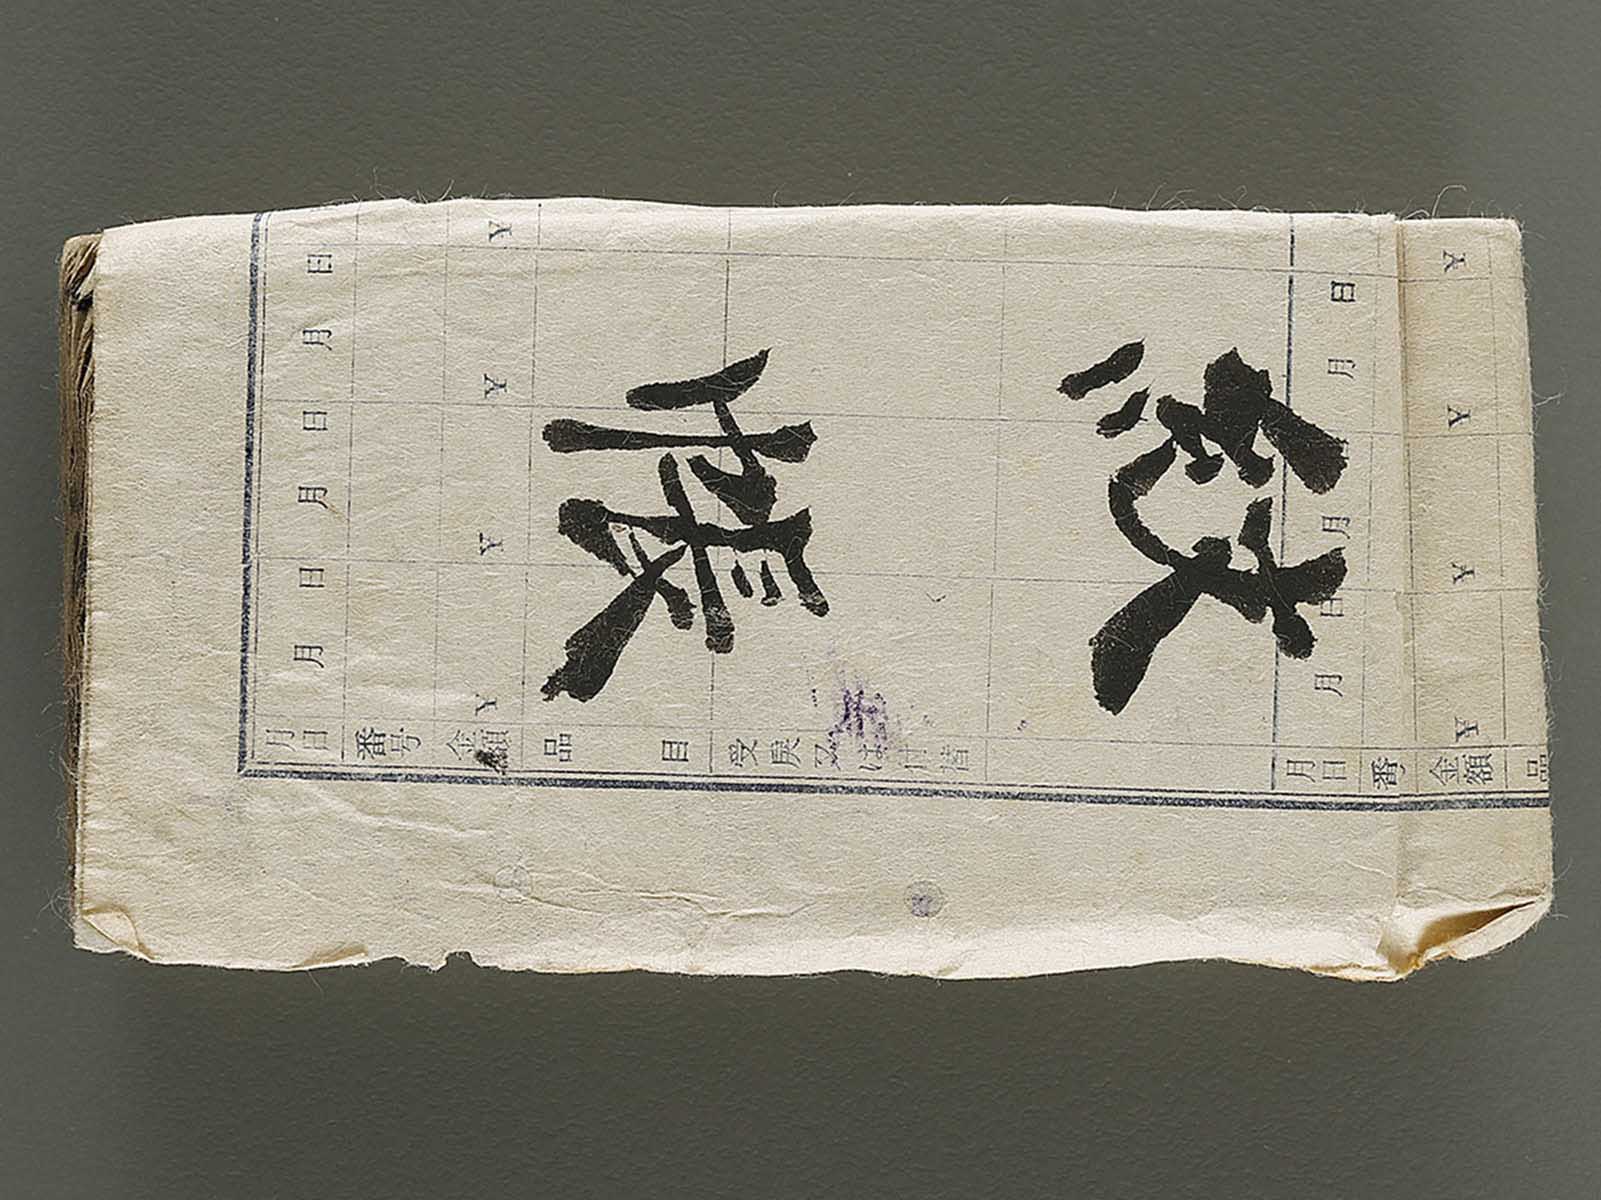 紋帳
月日 番号 金額 品目 受戻又は
月日 月日 月日
Y Y Y Y
月日 番 金額 品
月日 月日
Y Y Y Y